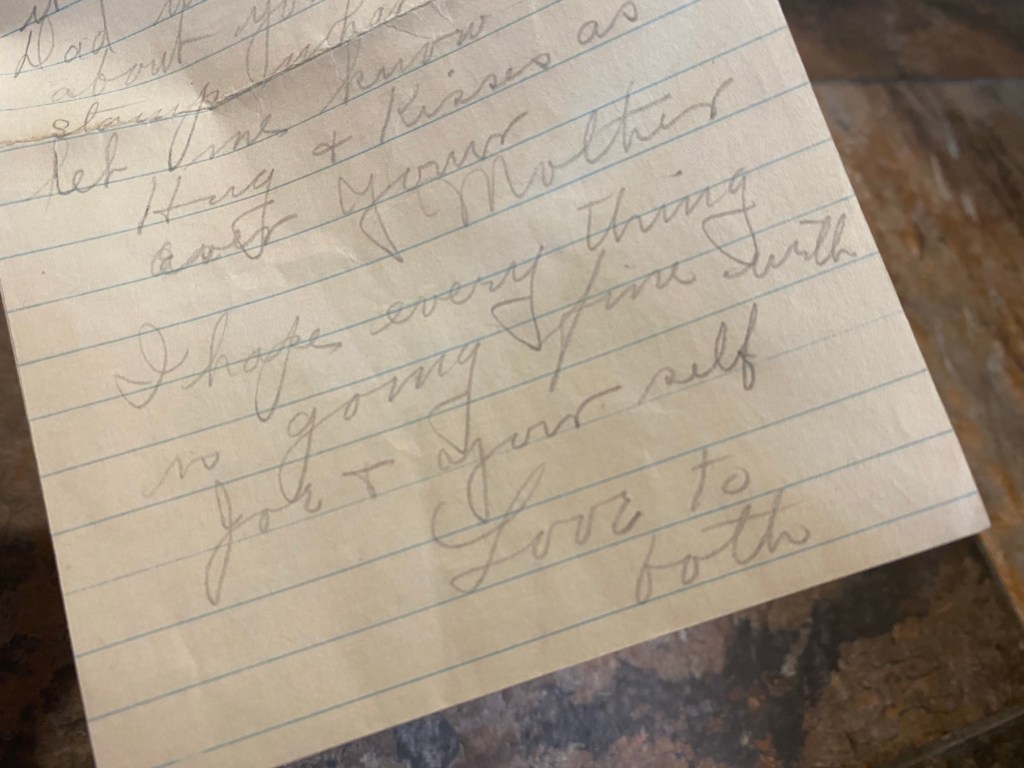 Dad
about you
stamp
let me know
Hug & Kisses as
ever Your
Mother
I hope every thing
is going fine with
Joe + your self
Love to
both